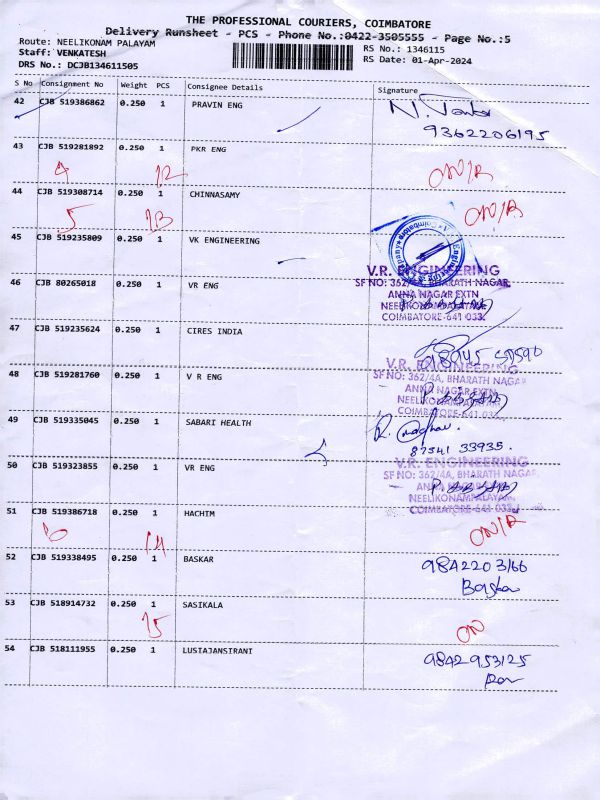 THE PROFESSIONAL COURIERS, COIMBATORE
Delivery Runsheet - PCS - Phone No.:0422-3505555 - Page No.:5
Route: NEELIKONAM PALAYAM
RS No.: 1346115
Staff: VENKATESH
RS Date: 01-Apr-2024
DRS No.: DCJB134611505
S No Consignment No Weight PCS Consignee Details Signature
42 CJB 519386862 0.250 1 PRAVIN ENG
9362206195
43 CJB 519281892 0.250 1 PKR ENG
12 ON/R
44 CJB 519308714 0.250 1 CHINNASAMY
5 13 ON/R
45 CJB 519235809 0.250 1 VK ENGINEERING
V.R. ENGINEERING
46 CJB 80265018 0.250 1 VR ENG
SF NO: 362/4A, BHARATH NAGAR,
ANNA NAGAR EXTN
NEELIKONAMPALAYAM,
COIMBATORE-641 033.
47 CJB 519235624 0.250 1 CIRES INDIA
V.R. ENGINEERING
48 CJB 519281760 0.250 1 V R ENG
SF NO: 362/4A, BHARATH NAGAR
ANNA NAGAR EXTN
NEELIKONAMPALAYAM
COIMBATORE-641 033.
49 CJB 519335045 0.250 1 SABARI HEALTH
87541 33935
50 CJB 519323855 0.250 1 VR ENG
V.R. ENGINEERING
SF NO: 362/4A, BHARATH NAGAR,
ANNA NAGAR EXTN
NEELIKONAMPALAYAM
COIMBATORE-641 033.
51 CJB 519386718 0.250 1 HACHTM
6 14 ON/R
52 CJB 519338495 0.250 1 BASKAR
9842203166
Baskar
53 CJB 518914732 0.250 1 SASIKALA
15 ON
54 CJB 518111955 0.250 1 LUSTAJANSIRANI
9842953125